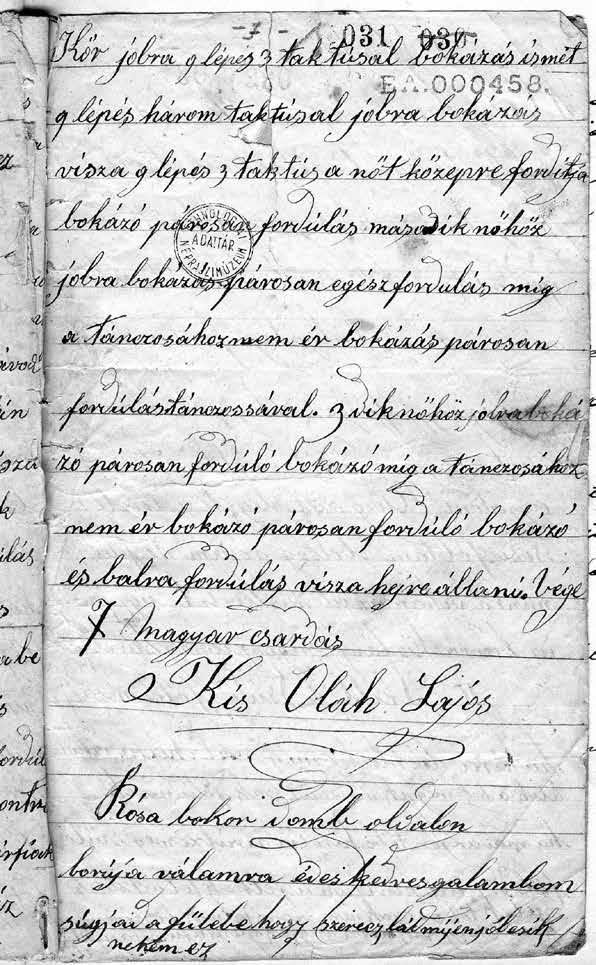 -7-
031 030
Kör jobra 9 lépés 3 taktúsal bokázás ismét
EA.000458.
9 lépés három taktúsal jobra bokázás
visza 9 lépés 3 taktús a nőt középre fordítja
bokázó párosan fordúlás második nőhöz
ETHNOLOGIAI ADATTÁR NÉPRAJZI MÚZEUM
jobra bokázás párosan egész fordulás míg
a tánczosához nem ér bokázás párosan
fordúlás tánczossával. 3 dik nőhöz jobra boká
zó párosan fordúló bokázó míg a tánczosához
nem ér bokázó párosan fordúló bokázó
és balra fordúlás visza hejre állani. Vége
7 Magyar csardás
Kis Oláh Lajós
Rósa bokor domb oldalon
borúja válamra édes kedves galambom
súgjad a fülebe hogy szerecz lád mijen jól esik
nekem ez